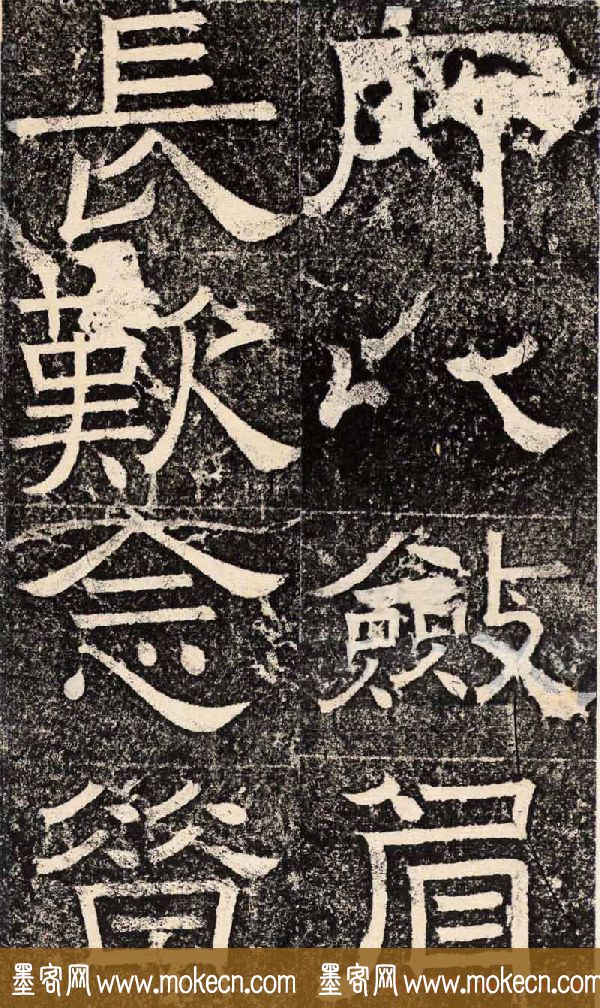 所以斂眉
長歎念營
墨客网 www.mokecn.com 墨客网 www.mokecn.com